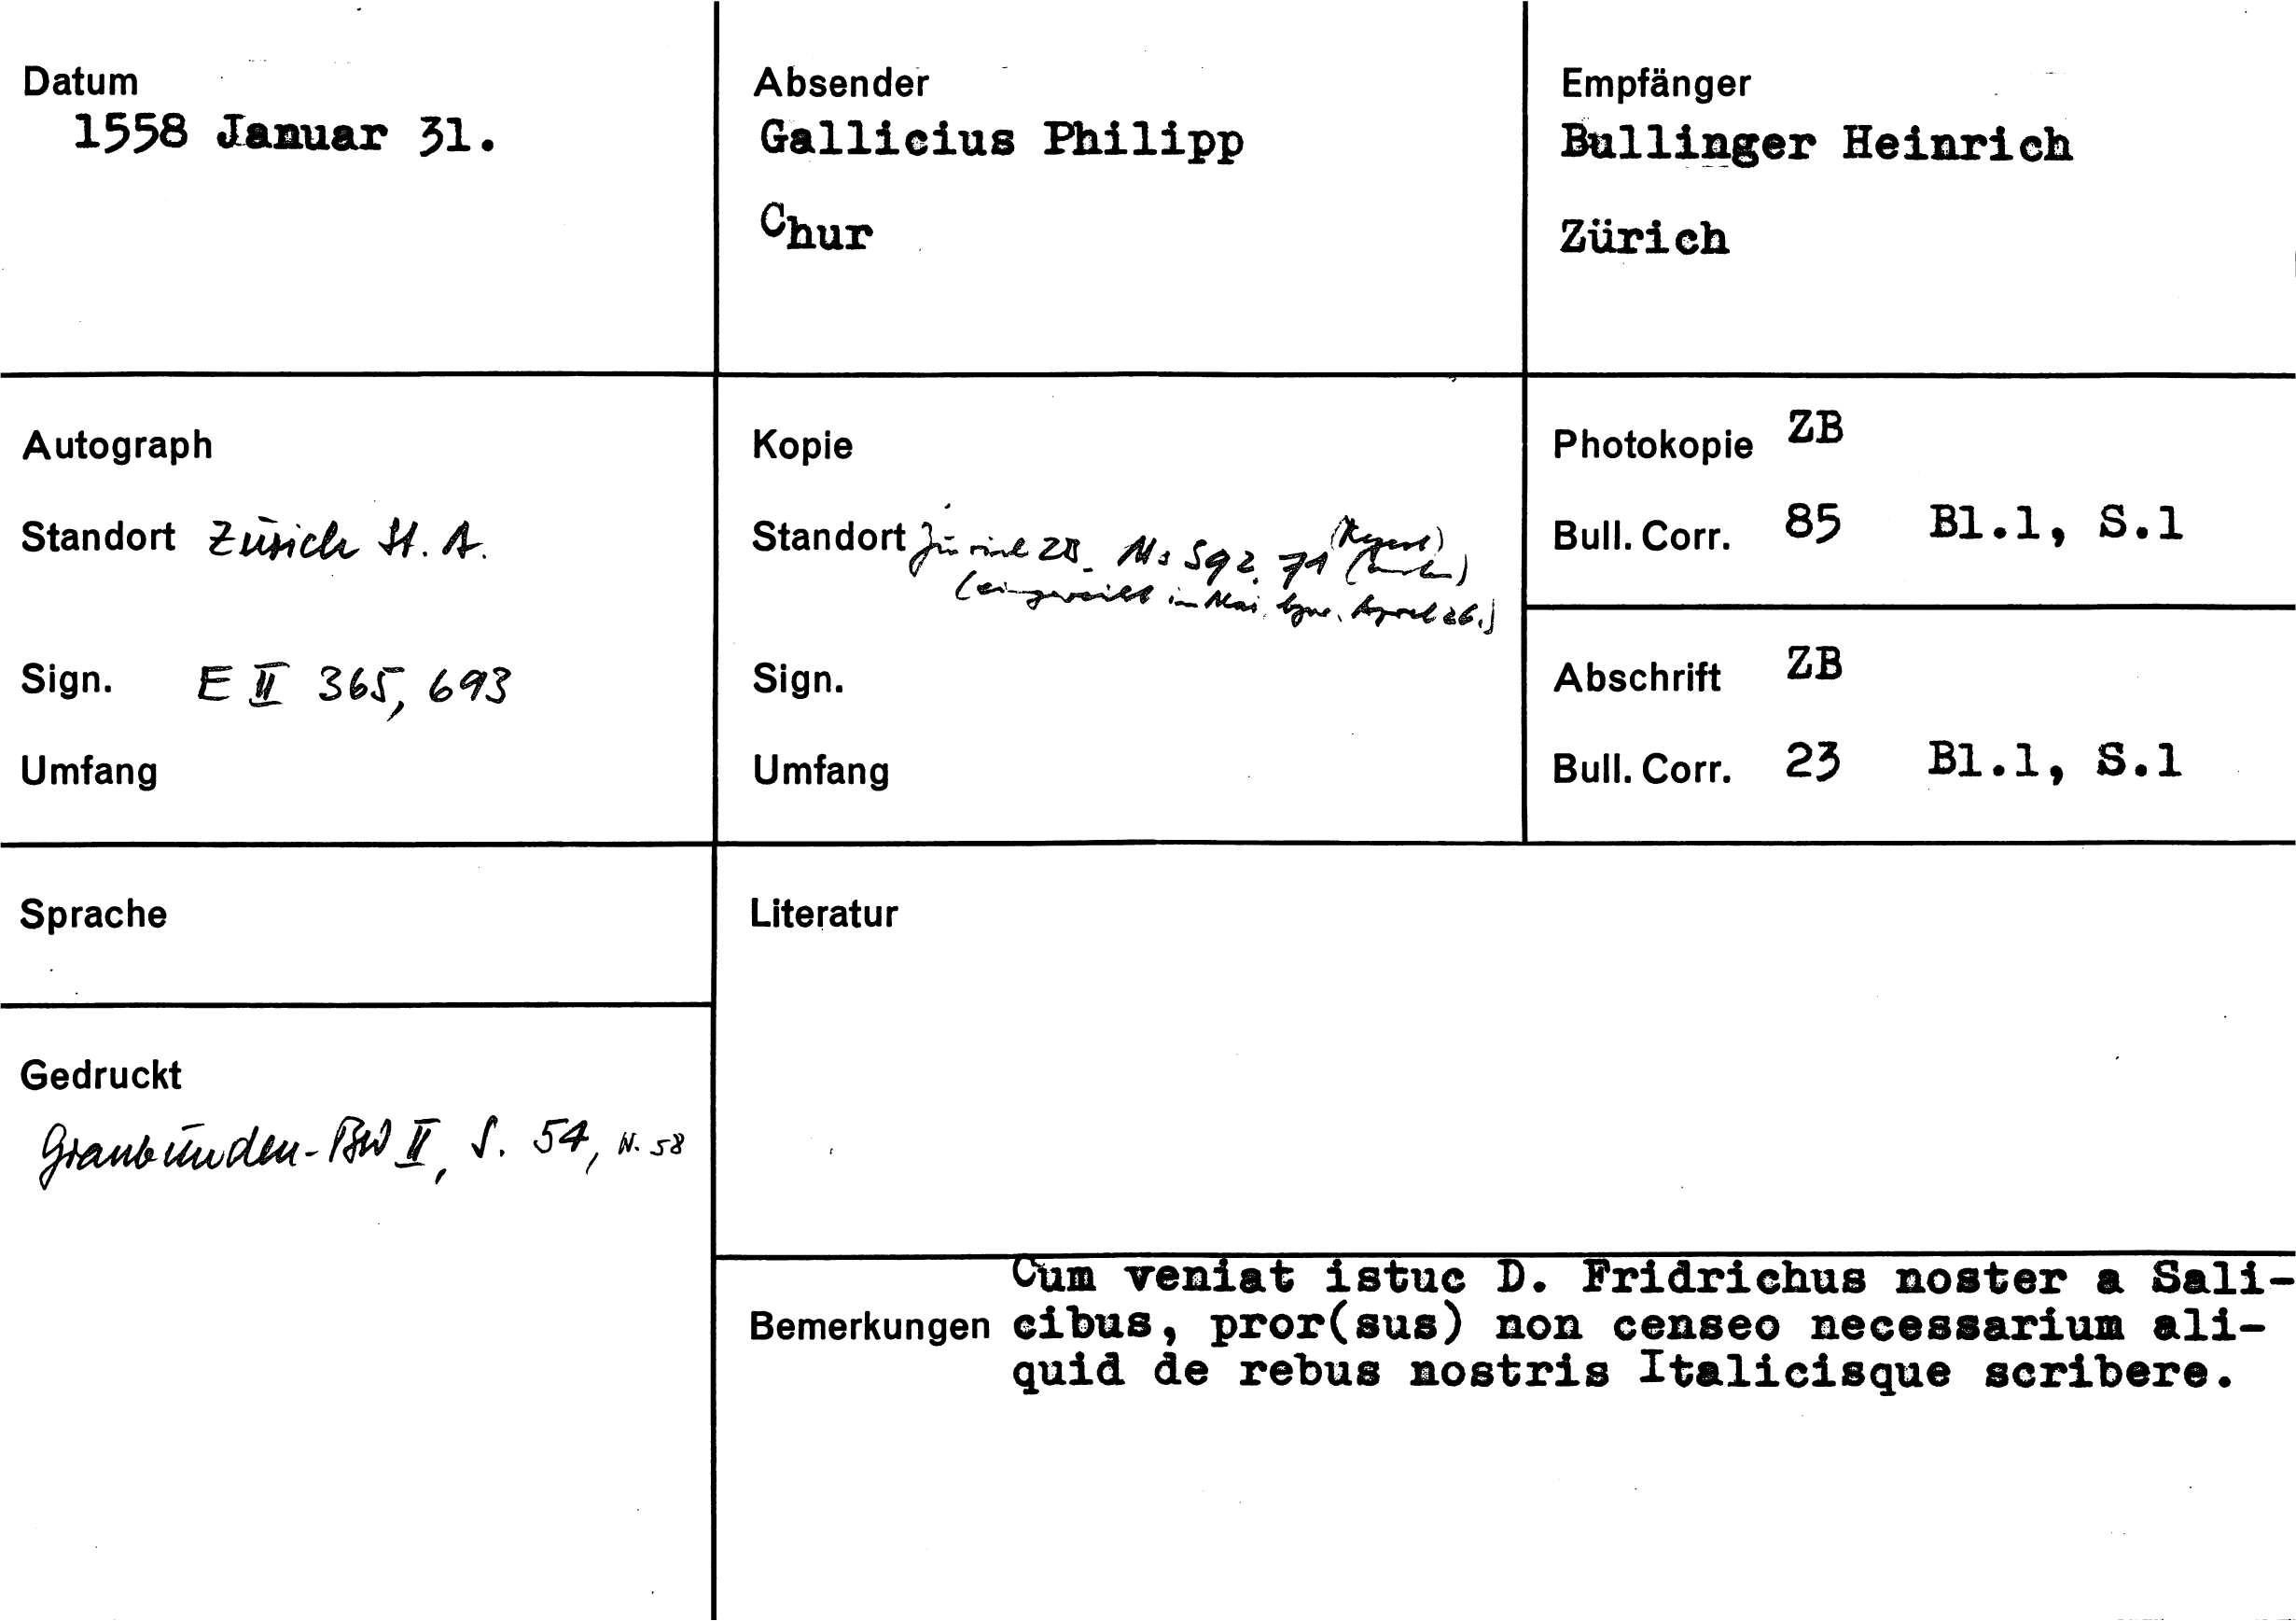 Datum
1558 Januar 31.
Absender
Gallicius Philipp
Chur
Empfänger
Bullinger Heinrich
Zürich
Autograph
Standort Zürich St. A.
Sign. E II 365, 693
Umfang
Kopie
Standort Zürich ZB. Ms S 92, 71 (Regest)
(eingereiht im Mai, bzw. April 26.)
Sign.
Umfang
Photokopie ZB
Bull. Corr. 85 Bl.1, S.1
Abschrift ZB
Bull. Corr. 23 Bl.1, S.1
Sprache
Gedruckt
Graubünden-BW II, S. 54, N. 58
Literatur
Bemerkungen
Cum veniat istuc D. Fridrichus noster a Sali-
cibus, pror(sus) non censeo necessarium ali-
quid de rebus nostris Italicisque scribere.